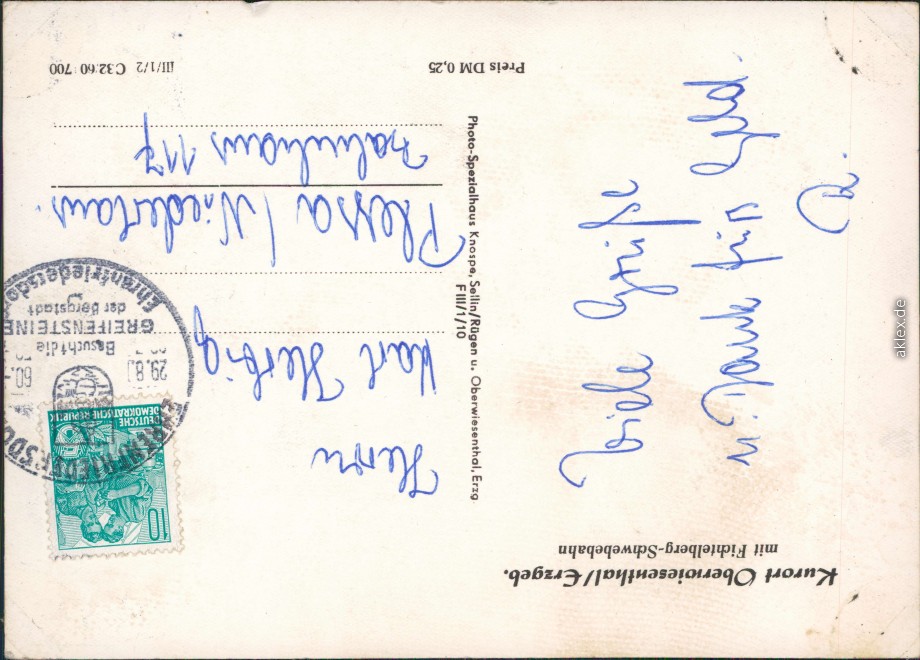 Kurort Oberwiesenthal/Erzgeb.
mit Fichtelberg-Schwebebahn
Viele Grüße
u. Dank für Geld.
R.
Photo-Spezialhaus Knospe, Sellin/Rügen u. Oberwiesenthal, Erzg
F III/1/10
10
DEUTSCHE
DEMOKRATISCHE REPUBLIK
EHRENFRIEDERSDORF
29.8.
60.
Besucht die
GREIFENSTEINE
der Bergstadt
Ehrenfriedersdorf
Herrn
Karl Herbig
Plessa / Niederlaus.
117
Preis DM 0,25
III/1/2 C 32 60 700
akleX.de